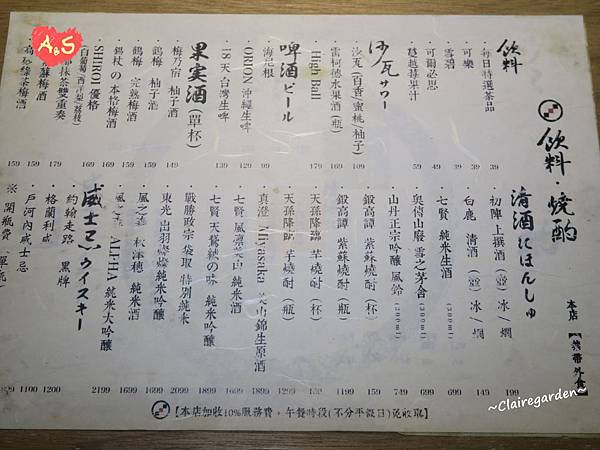 飲料・燒酌
本店
飲料
每日特選茶品 39
可樂 39
雪碧 39
可爾必思 49
蔓越莓果汁 59
沙瓦 サワー
沙瓦(百香/蜜桃/柚子) 109
雷柯德水果酒(瓶) 169
High Ball 179
啤酒 ビール
海尼根 99
ORION 沖繩生啤 129
18天台灣生啤 139
果実酒(單杯)
梅乃宿 柚子酒 149
鶴梅 柚子酒 159
鶴梅 完熟梅酒 159
鶴杖の本格梅酒 159
SHIROI 優格 169
(白葡萄酒/洋梨/荔枝) 169
抹茶雙重奏 179
蘇梅酒 159
高砂綠茶梅酒 159
清酒 にほんしゅ
初陣 上撰酒(壺)冰/燗 199
白鹿 清酒(壺)冰/燗 149
七賢 純米生酒(300ml) 449
奧傳山廢 雪之茅舍(300ml) 699
山丹正宗吟釀 風鈴(300ml) 749
鍛高譚 紫蘇燒酎(杯) 159
鍛高譚 紫蘇燒酎(瓶) 1199
天孫降臨 芋燒酎(杯) 159
天孫降臨 芋燒酎(瓶) 1299
真澄 Miyasaka 山錦生原酒 1899
七賢 純米酒 1699
七賢 天鵝絨の味 純米吟釀 1899
戰勝政宗 袋取 特別純米 2099
東光 出羽燦燦 純米吟釀 1699
風之森 秋津穗 純米酒 1699
風之森 ALPHA 純米大吟釀 2199
威士忌 ウイスキー
約翰走路 黑牌 1200
格蘭利威
戶河內威士忌 1100
※ 開瓶費
【本店加收10%服務費,午餐時段(不分平假日)免收取】
A&S
~Clairegarden~